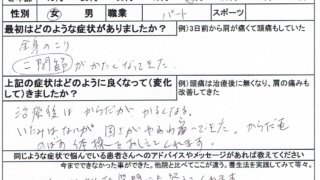 性別 女 男 職業 パート スポーツ
最初はどのような症状がありましたか? 例)3日前から肩が痛くて頭痛もしていた
全身のこり
(二関節)がかたくなってきた
上記の症状はどのように良くなって(変化して)きましたか? 例)頭痛は治療後に無くなり、肩の痛みも改善してきた
治療後はからだがかるくなる。
いたみはないが
からだを
のばす体操をおしえてくれます。
同じような症状で悩んでいる患者さんへのアドバイスやメッセージがあれば教えてください
今までできなかった事ができた。他院と比べてここが違う、養生法を実践してみて等。